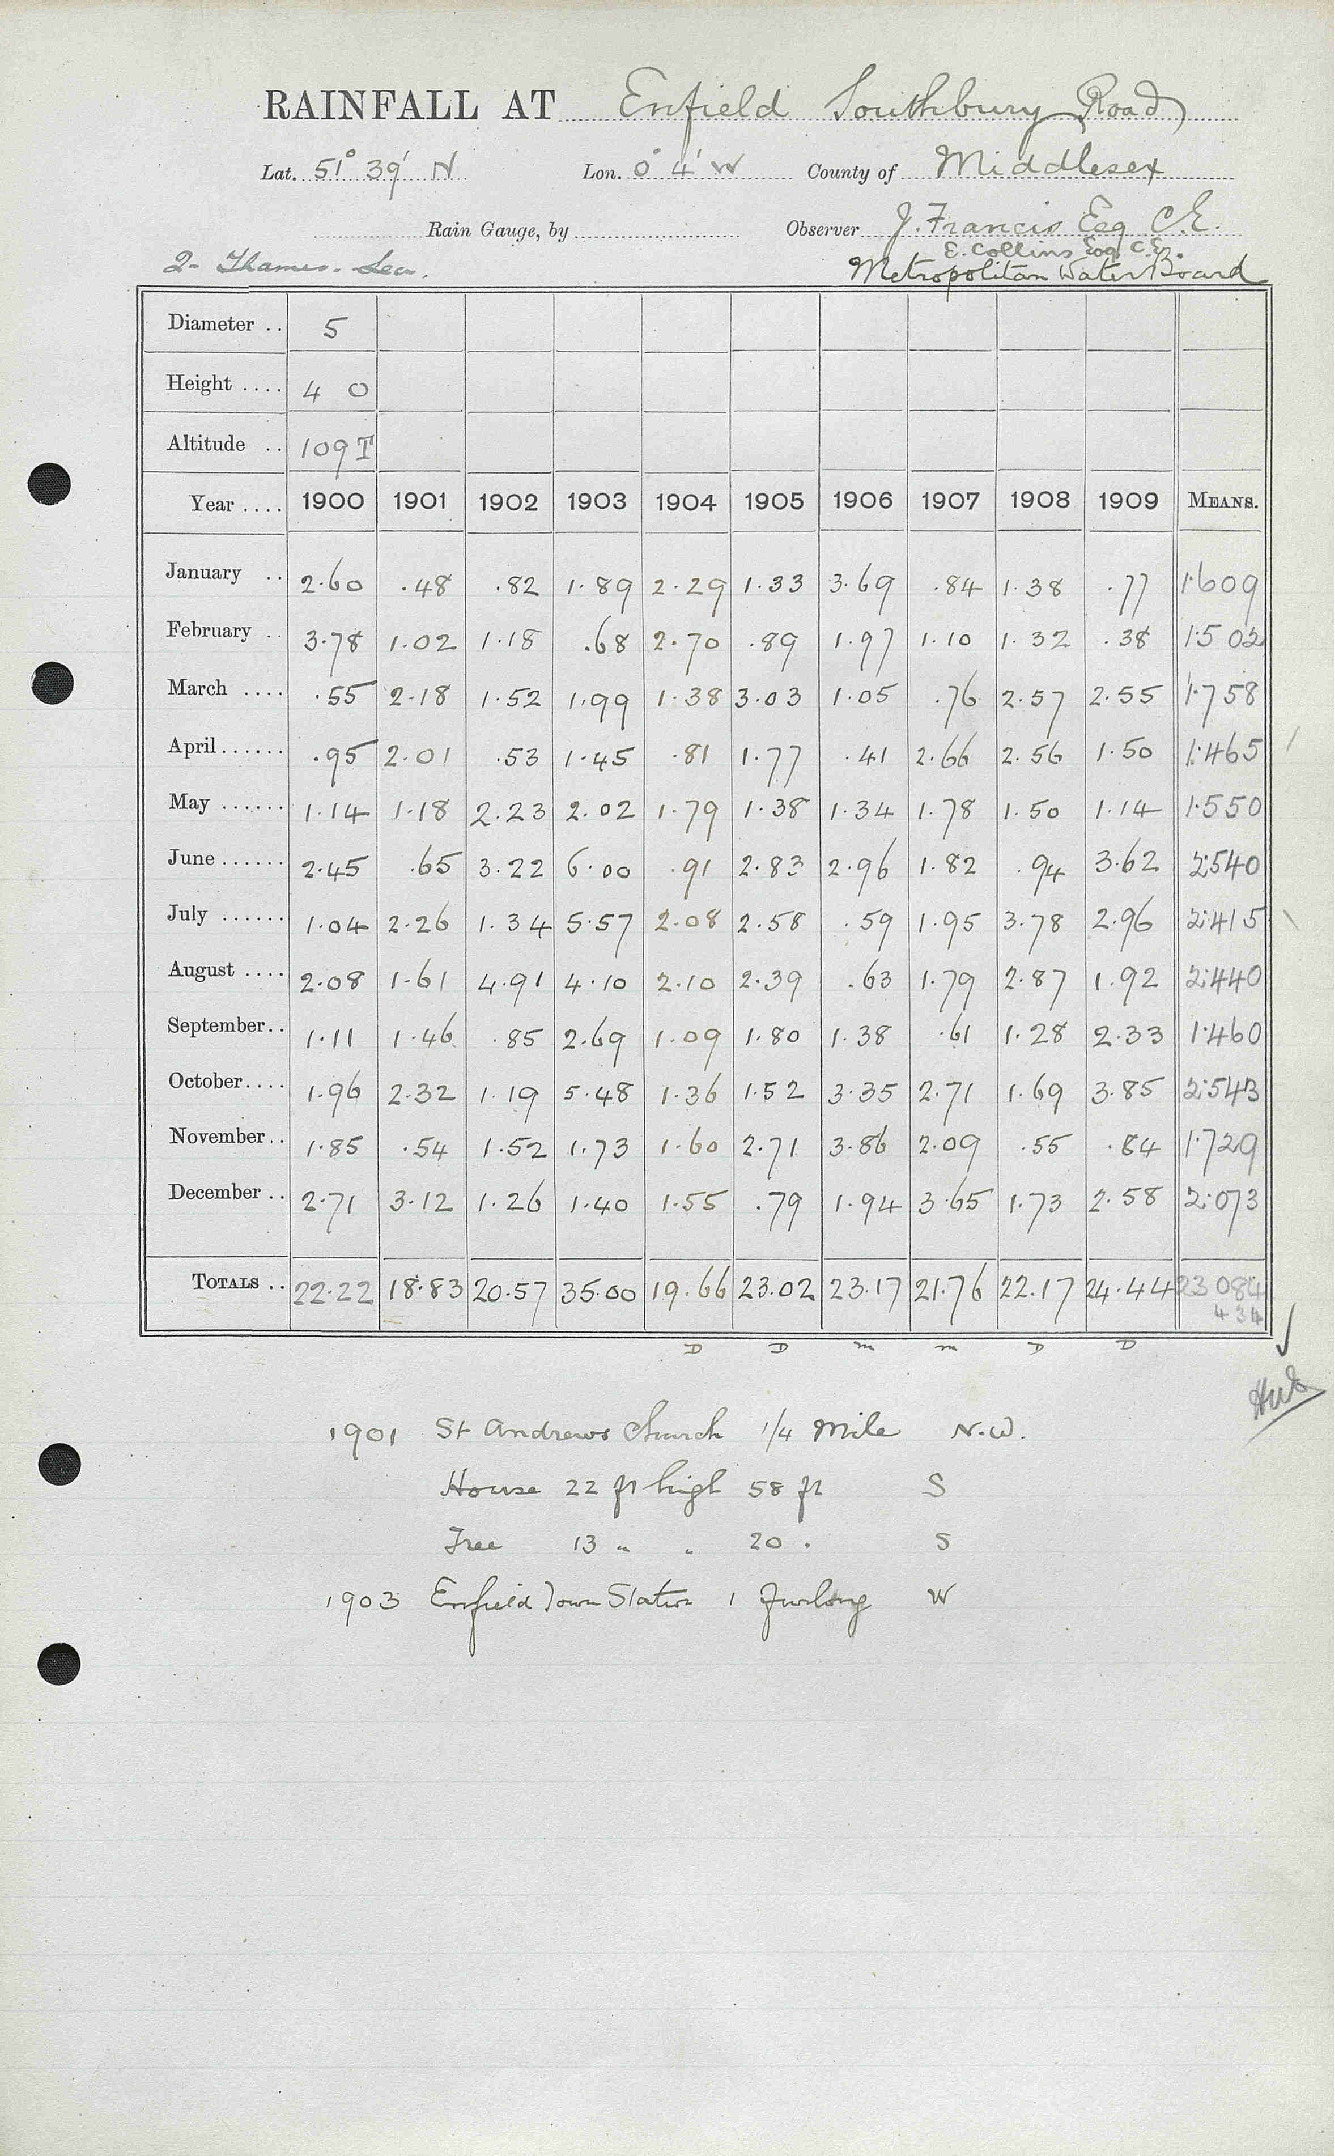 RAINFALL AT Enfield Southbury Road
Lat. 51° 39' N Lon. 0° 4' W County of Middlesex
Rain Gauge, by Observer J. Francis Esq C.E.
E. Collins Esq C.E.
2- Thames-Lea. Metropolitan Water Board
Diameter .. 5
Height .... 4 0
Altitude .. 109 T
Year .... 1900 1901 1902 1903 1904 1905 1906 1907 1908 1909 MEANS.
January .. 2.60 .48 .82 1.89 2.29 1.33 3.69 .84 1.38 .77 1.609
February .. 3.78 1.02 1.18 .68 2.70 .89 1.97 1.10 1.32 .38 1.502
March .... .55 2.18 1.52 1.99 1.38 3.03 1.05 .76 2.57 2.55 1.758
April ...... .95 2.01 .53 1.45 .81 1.77 .41 2.66 2.56 1.50 1.465
May ...... 1.14 1.18 2.23 2.02 1.79 1.38 1.34 1.78 1.50 1.14 1.550
June ...... 2.45 .65 3.22 6.00 .91 2.83 2.96 1.82 .94 3.62 2.540
July ...... 1.04 2.26 1.34 5.57 2.08 2.58 .59 1.95 3.78 2.96 2.415
August .... 2.08 1.61 4.91 4.10 2.10 2.39 .63 1.79 2.87 1.92 2.440
September.. 1.11 1.46 .85 2.69 1.09 1.80 1.38 .61 1.28 2.33 1.460
October.... 1.96 2.32 1.19 5.48 1.36 1.52 3.35 2.71 1.69 3.85 2.543
November.. 1.85 .54 1.52 1.73 1.60 2.71 3.86 2.09 .55 .84 1.729
December .. 2.71 3.12 1.26 1.40 1.55 .79 1.94 3.65 1.73 2.58 2.073
TOTALS .. 22.22 18.83 20.57 35.00 19.66 23.02 23.17 21.76 22.17 24.44 23.084
4 34
D D m m D D
1901 St Andrews Church 1/4 Mile N.W.
House 22 ft high 58 ft S
Tree 13 " " 20 . S
1903 Enfield Town Station 1 furlong W